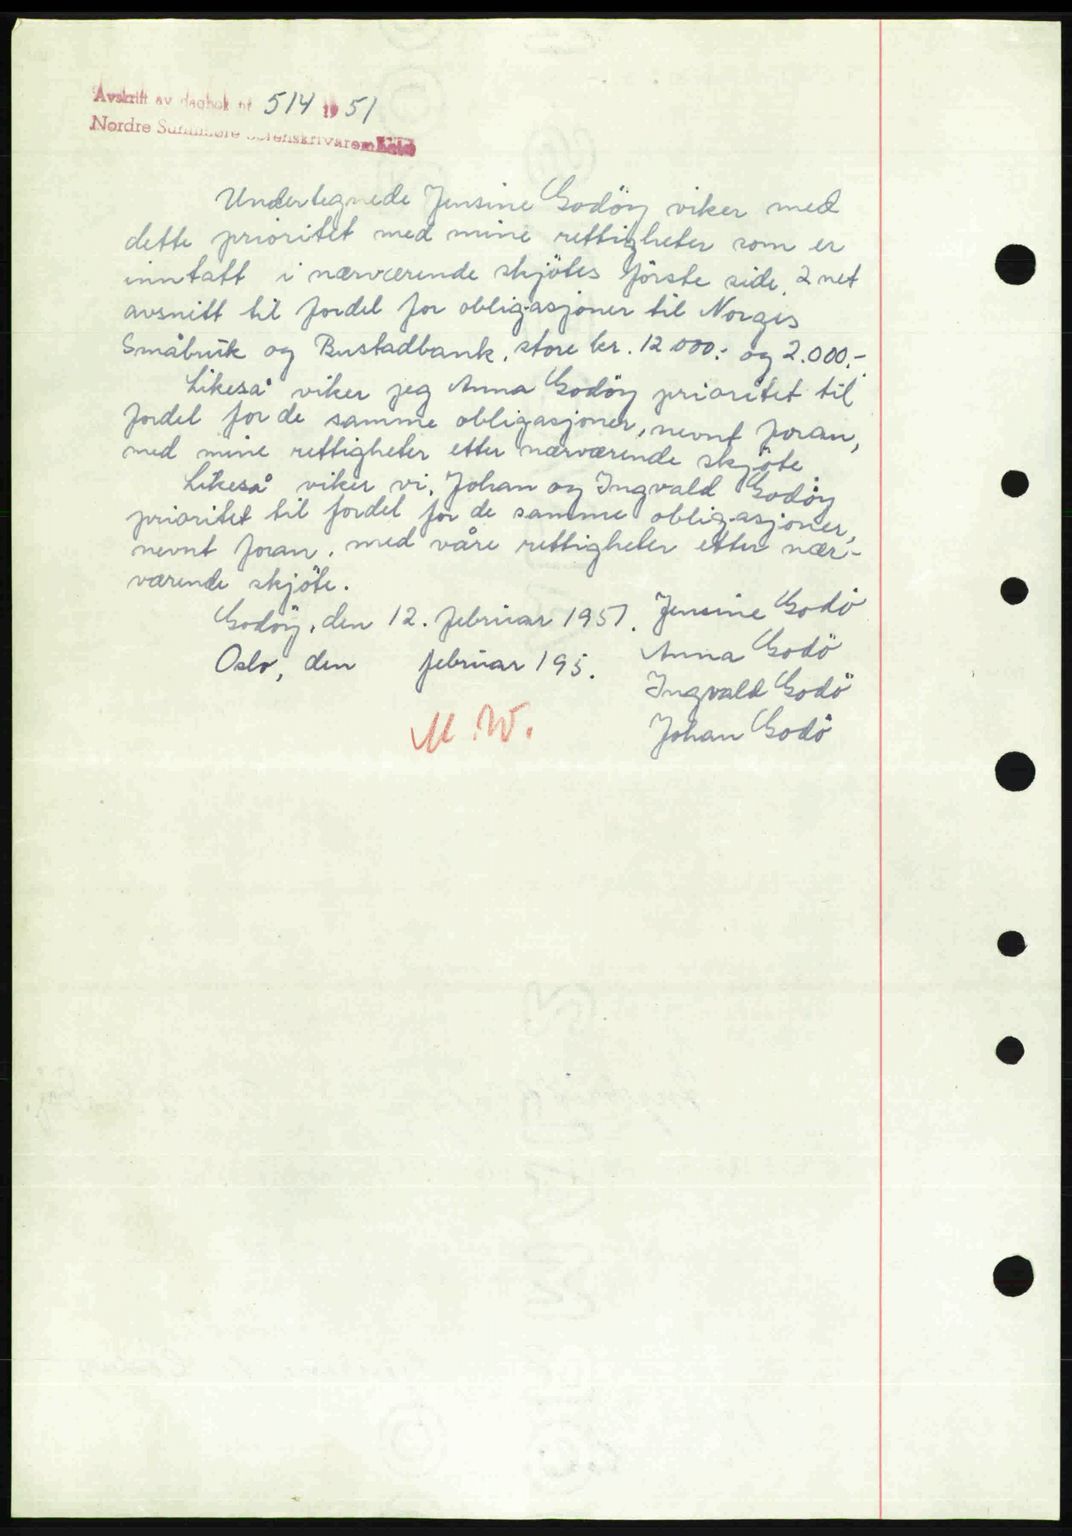 Avskrift av dagbok nr 514 1951
Nordre Sunnmøre Sorenskrivarembete
Undertegnede Jensine Godöy viker med
dette prioritet med mine rettigheter som er
inntatt i nærværende skjötes förste side, 2 net
avsnitt til fordel for obligasjoner til Norges
Småbruk og Bustadbank, store kr. 12 000.- og 2.000.-
Likeså viker jeg Anna Godöy prioritet til
fordel for de samme obligasjoner, nevnt foran,
med mine rettigheter etter nærværende skjöte
Likeså viker vi, Johan og Ingvald Godöy
prioritet til fordel for de samme obligasjoner,
nevnt foran, med våre rettigheter etter nær-
værende skjöte.
Godöy, den 12. februar 1951. Jensine Godö
Oslo, den februar 195. Anna Godö
Ingvald Godö
M.W. Johan Godö